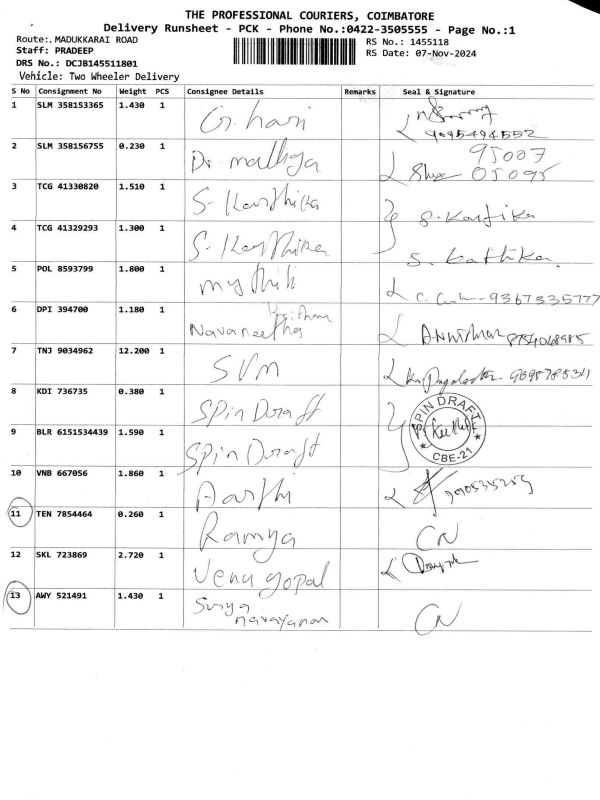 THE PROFESSIONAL COURIERS, COIMBATORE
Delivery Runsheet - PCK - Phone No.:0422-3505555 - Page No.:1
Route:. MADUKKARAI ROAD
Staff: PRADEEP
DRS No.: DCJB145511801
Vehicle: Two Wheeler Delivery
RS No.: 1455118
RS Date: 07-Nov-2024
S No Consignment No Weight PCS Consignee Details Remarks Seal & Signature
1 SLM 358153365 1.430 1 G. hari
9095494552
2 SLM 358156755 0.230 1 Dr. malliga 95007
05095
3 TCG 41330820 1.510 1 S. Karthika S. Kartika
4 TCG 41329293 1.300 1 S. Karthika S. Kartika
5 POL 8593799 1.800 1 mythili 9367335777
6 DPI 394700 1.180 1 Navaneetha
7 TNJ 9034962 12.200 1 SVM
8 KDI 736735 0.380 1 Spin Draft SPIN DRAFT
9 BLR 6151534439 1.590 1 Spin Draft CBE-21
10 VNB 667056 1.860 1 Aarthi
11 TEN 7854464 0.260 1 Ramya CN
12 SKL 723869 2.720 1 Venu gopal
13 AWY 521491 1.430 1 Surya
narayanan CN